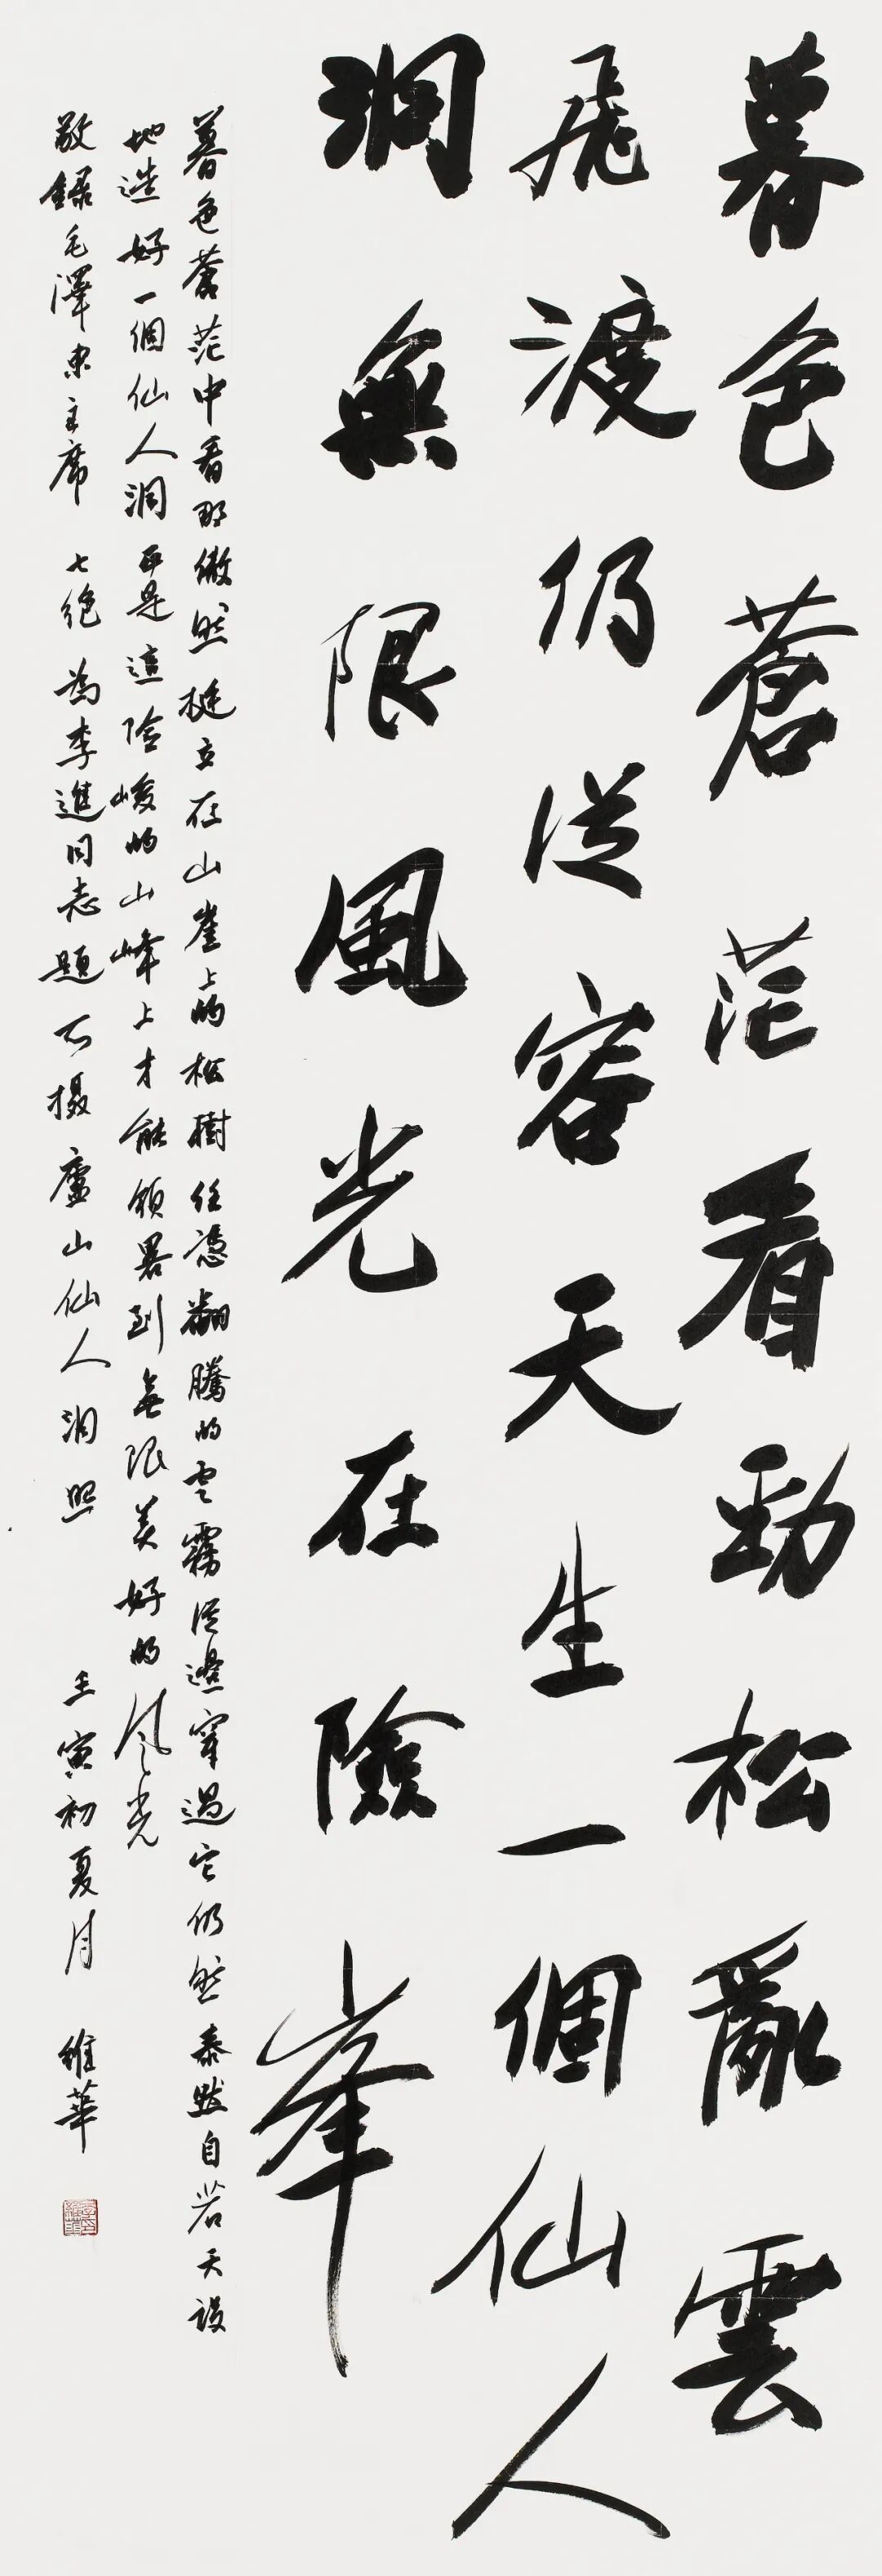 暮色蒼茫看勁松亂雲
飛渡仍從容天生一個仙人
洞無限風光在險峰
暮色蒼茫中看那傲然挺立在山崖上的松樹任憑翻騰的雲霧從邊穿過它仍然泰然自若天設
地造好一個仙人洞正是這險峻的山峰上才能領略到無限美好的風光
敬錄毛澤東主席 七絕 為李進同志題所攝廬山仙人洞照 壬寅初夏月 維華